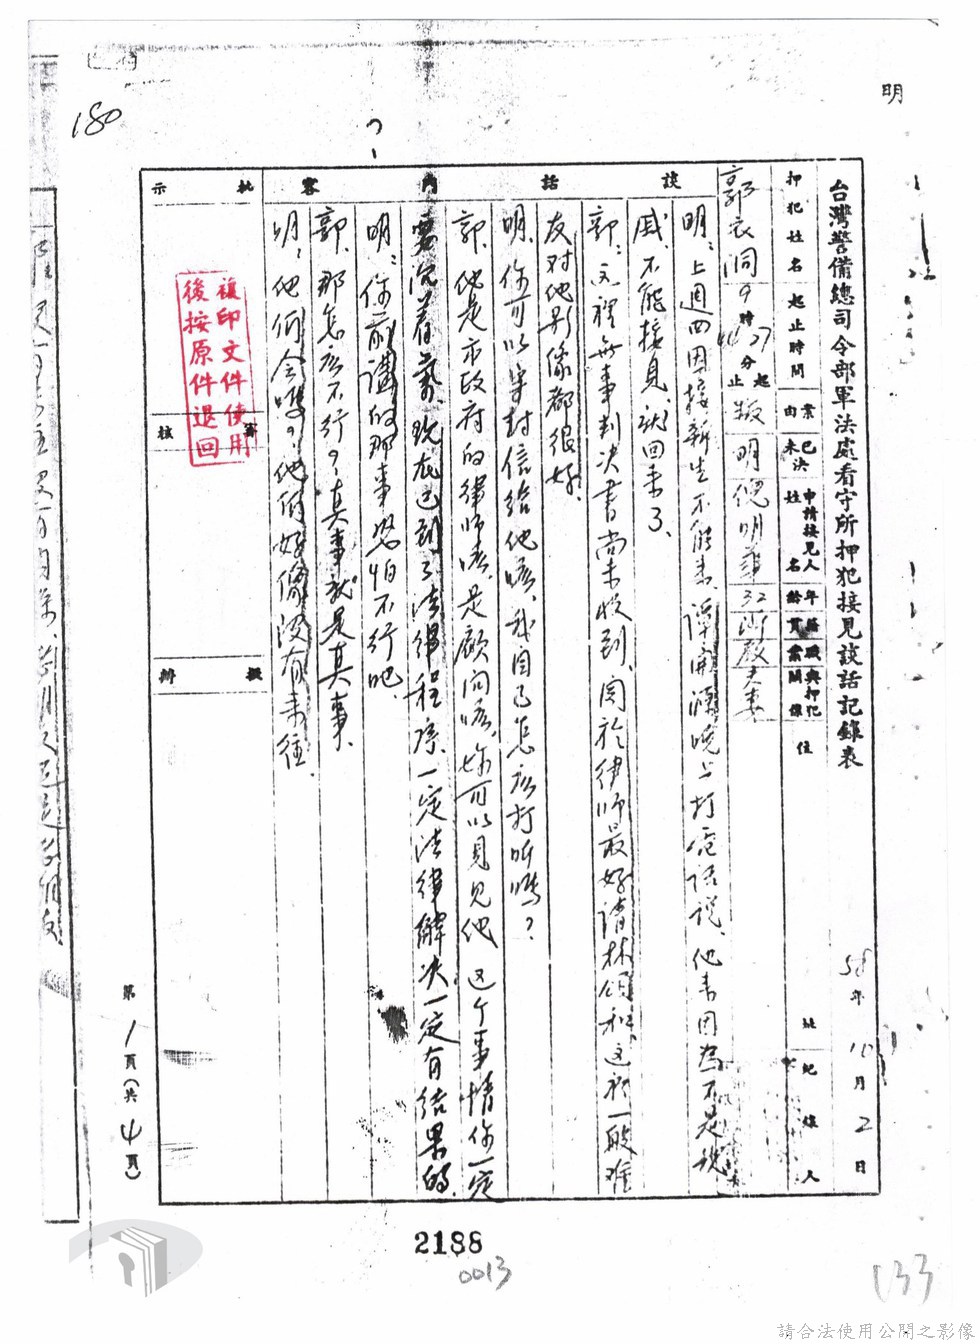 明
180
台灣警備總司令部軍法處看守所押犯接見談話記錄表
58年10月2日
押犯姓名
起止時間
案由
已決未決
申請接見人姓名
年齡
籍貫
職業
與押犯關係
住址
紀錄人
郭衣洞
9時27分起
46止
叛
明
倪明華
32
浙
夫妻
談話內容
明：上週四因接新生不能來、譚開濂晚上打電話說、他來因為不是親
戚、不能接見、就回來了、
郭：这裡無事判决書尚未收到、関於律师最好請林頌和、这裡一般难
友对他影像都很好、
明、你可以寫封信給他嗎、我自己怎広打听嗎？
郭、他是市政府的律师嗎、是顧问嗎、妳可以見見他 这个事情你一定
要沉着氣、既然已到了法律程序、一定法律解决一定有结果的、
明：你前講的那事恐怕不行吧、
郭、那怎広不行？真事就是真事、
明，他们会嗎？他们好像没有来往、
批示
審核
擬辦
複印文件使用
後按原件退回
第1頁(共4頁)
2188
0013
133
請合法使用公開之影像